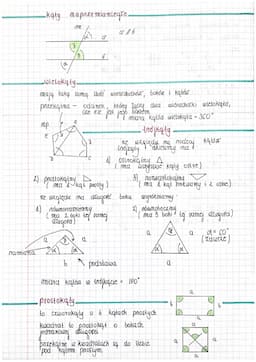 kąty naprzemianległe
m
a ∥ b
a
b
wielokąty
mają taką samą ilość wierzchołków, boków i kątów
przekątna - odcinek, który łączy dwa wierzchołki wielokąta,
ale nie jest jego bokiem
suma kątów wielokąta - 360°
trójkąty
E
D
A
B
C
ze względu na miary kątów
trójkąty dzielimy na:
1) ostrokątny
(ma wszystkie kąty ostre)
2) prostokątny
(ma 1 kąt prosty)
3) rozwartokątny
(ma 1 kąt rozwarty i 2 ostre)
ze względu na długość boku wyróżniamy:
1) równoramienny
(ma 2 boki tej samej
długości)
2) równoboczny
(ma 3 boki tej samej długości)
ramiona
a
a
b
podstawa
a
a
a
α = 60°
(zawsze)
suma kątów w trójkącie = 180°
prostokąty
to czworokąty o 4 kątach prostych
kwadrat to prostokąt o bokach
jednakowej długości
przekątne w kwadratach są do siebie
pod kątem prostym
a
b
b
a